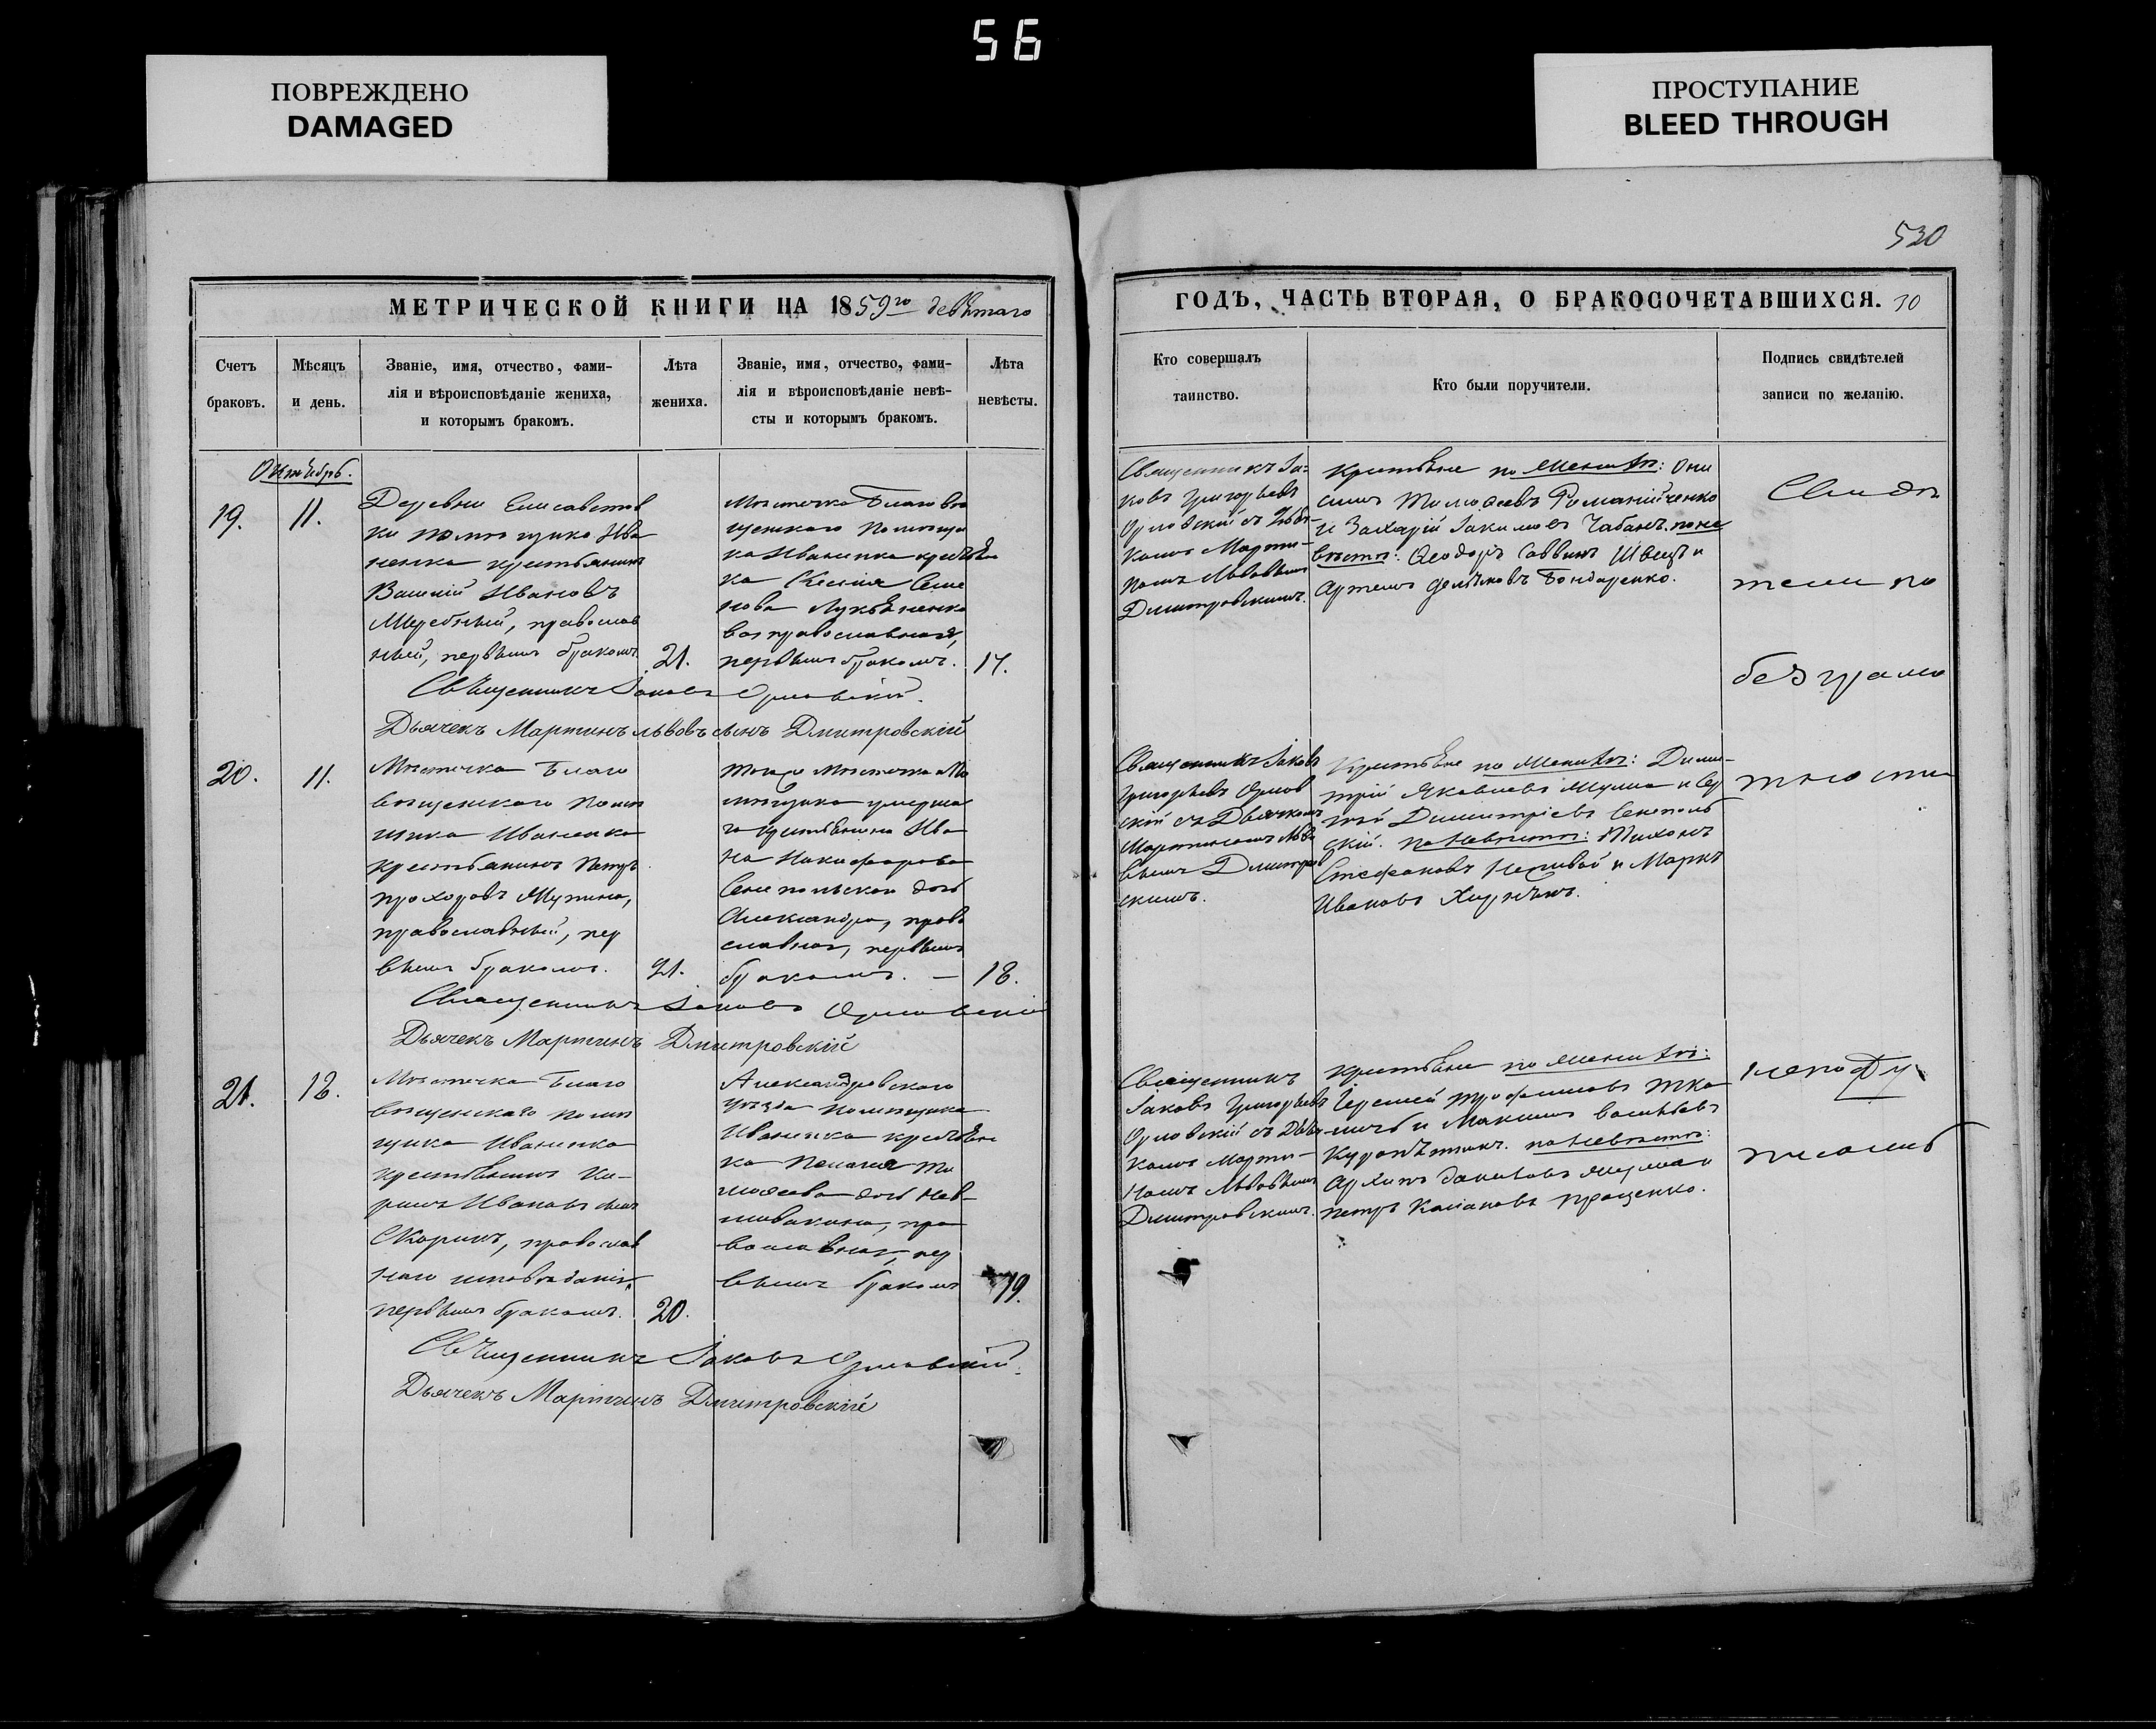 56
ПОВРЕЖДЕНО
DAMAGED
ПРОСТУПАНИЕ
BLEED THROUGH
МЕТРИЧЕСКОЙ КНИГИ НА 1859го девѣтаго
Счетъ
браковъ.
Мѣсяцъ
и день.
Званіе, имя, отчество, фами-
лія и вѣроисповѣданіе жениха,
и которымъ бракомъ.
Лѣта
жениха.
Званіе, имя, отчество, фами-
лія и вѣроисповѣданіе невѣ-
сты и которымъ бракомъ.
Лѣта
невѣсты.
Октябрь.
19.
11.
Деревни Елисаветов
ки помѣщика Ива
ненка крестьянинъ
Василій Ивановъ
православ
ный, первымъ бракомъ.
21.
Мѣстечка Благовѣ
щенскаго помѣщи
ка Иваненка крестьян
ка Ксенія Семе
нова Лукьяненко
ва православная,
первымъ бракомъ.
17.
Священникъ Іаковъ Орловскій.
Дьячекъ Мартинъ Львовъ сынъ Дмитровскій
20.
11.
Мѣстечка Благо
вѣщенскаго помѣ
щика Иваненка
крестьянинъ Петръ
Прохоровъ
православный, пер
вымъ бракомъ.
21.
Того мѣстечка
помѣщика умерша
го крестьянина Ива
на Никифорова
Сенипольскаго дочь
Александра, право
славная, первымъ
бракомъ. —
18.
Священникъ Іаковъ Орловскій
Дьячекъ Мартинъ Дмитровскій
21.
12.
Мѣстечка Благо
вѣщенскаго помѣ
щика Иваненка
крестьянинъ Ки-
рилъ Ивановъ сынъ
Скорикъ, православ
наго исповѣданія,
первымъ бракомъ.
20.
Александровскаго
уѣзда помѣщика
Иваненка крестьян
ка Пелагія Ти
моѳеева дочь
пра
вославная, пер
вымъ бракомъ
19.
Священникъ Іаковъ Орловскій.
Дьячекъ Мартинъ Дмитровскій
530
ГОДЪ, ЧАСТЬ ВТОРАЯ, О БРАКОСОЧЕТАВШИХСЯ. 10
Кто совершалъ
таинство.
Кто были поручители.
Подпись свидѣтелей
записи по желанію.
Священникъ Іа-
ковъ Григорьевъ
Орловскій съ Дьяч-
комъ Марти-
номъ Львовымъ
Дмитровскимъ.
Крестьяне по женихѣ: Они
симъ Тимоѳеевъ Романійченко
и Захарій Іакимовъ Чабанъ. по не
вѣстѣ: Ѳеодоръ Саввинъ Швецъ и
Артемъ Бондаренко.
Священникъ Іаковъ
Григорьевъ Орлов
скій съ Дьячкомъ
Мартиномъ Льво
вымъ Дмитров
скимъ.
Крестьяне по женихѣ: Дими-
трій Яковлевъ и Сер
гѣй Димитріевъ Сенеполь
скій. по невѣстѣ: Тихонъ
Стефановъ и Маркъ
Ивановъ
Священникъ
Іаковъ Григорьевъ
Орловскій съ Дьяч-
комъ Марти-
номъ Львовымъ
Дмитровскимъ.
Крестьяне по женихѣ:
Трофимовъ Тка
и Максимъ Васильевъ
по невѣстѣ:
Архипъ Даниловъ и
Петръ Касіановъ Проценко.
Свидѣ
тели по
безграмо
тности